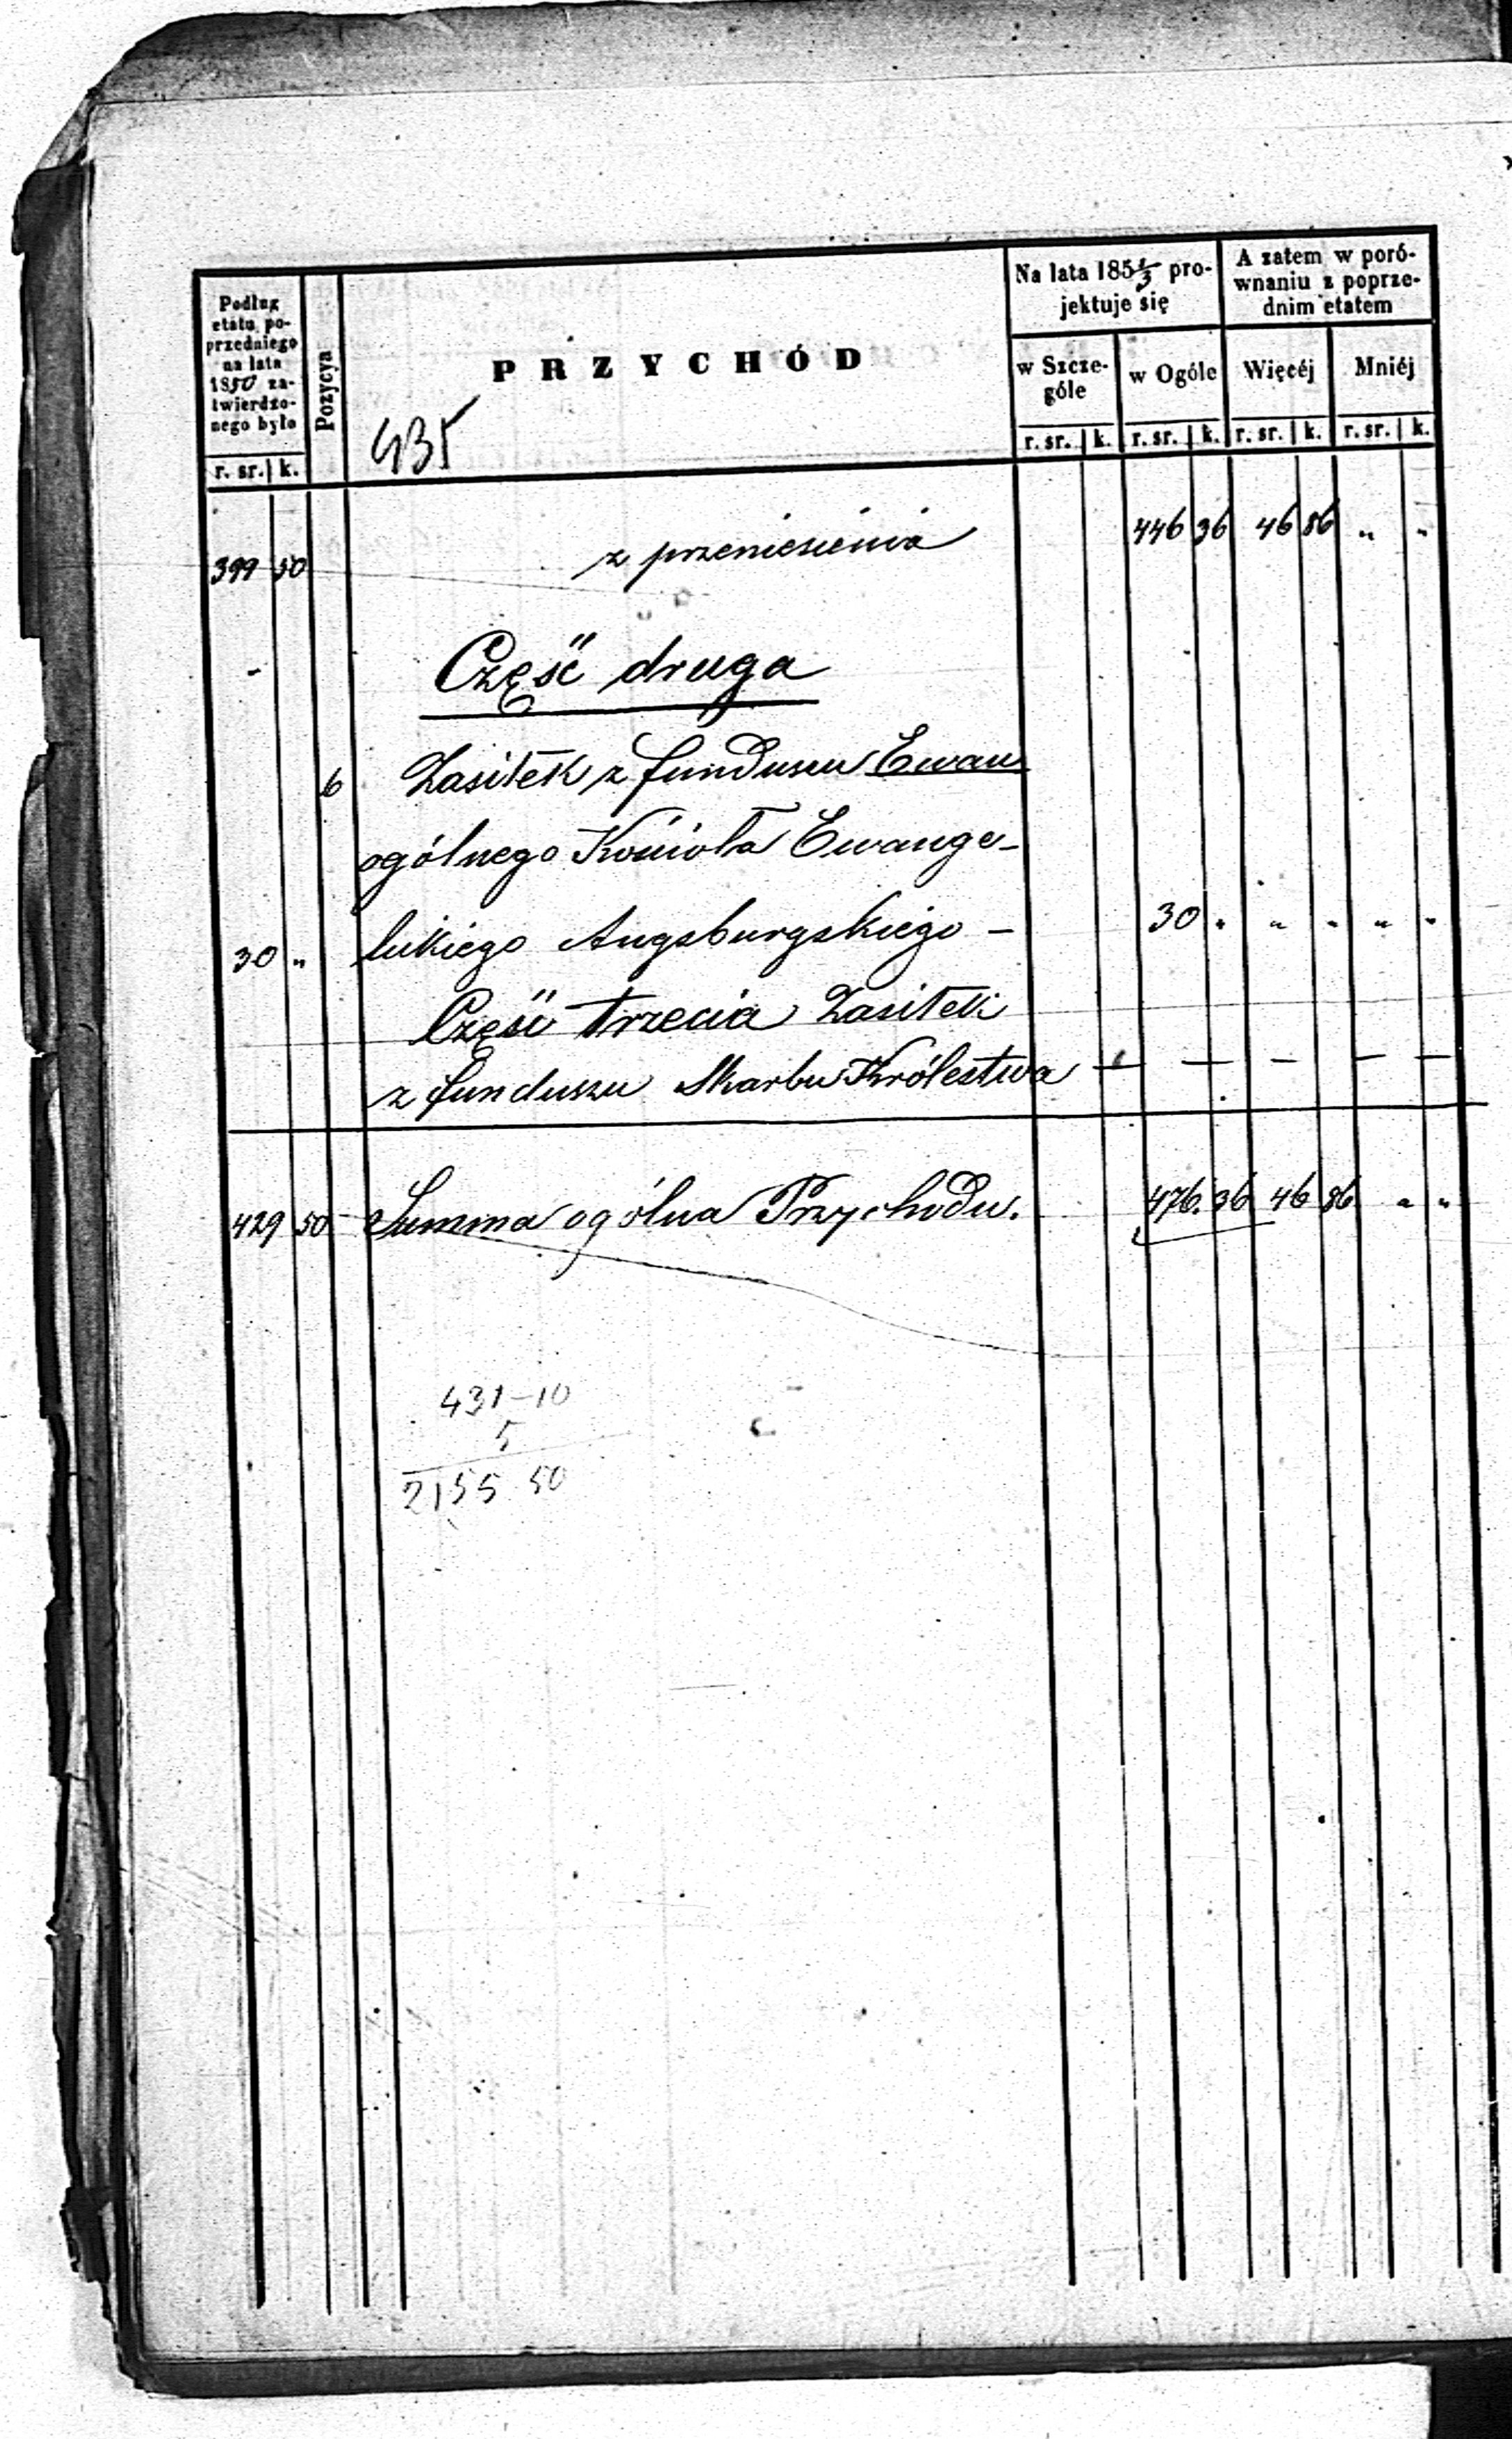 Podług etatu poprzedniego na lata 1850 zatwierdzonego było
r. sr. | k.
Pozycya
PRZYCHÓD
435
Na lata 185 1/3 projektuje się
w Szczególe
r. sr. | k.
w Ogóle
r. sr. | k.
A zatem w porównaniu z poprzednim etatem
Więcéj
r. sr. | k.
Mniéj
r. sr. | k.
399 50 z przeniesienia 446 36 46 86 " "
Część druga
6 Zasiłek z funduszu Ewan
ogólnego Kościoła Ewange-
30 " lickiego Augsburgskiego - 30 " " " " "
Część trzecia Zasiłek
z funduszu Skarbu Królestwa — — — — —
429 50 Summa ogólna Przychodu. 476. 36 46 86 " "
431-10
5
2155 50